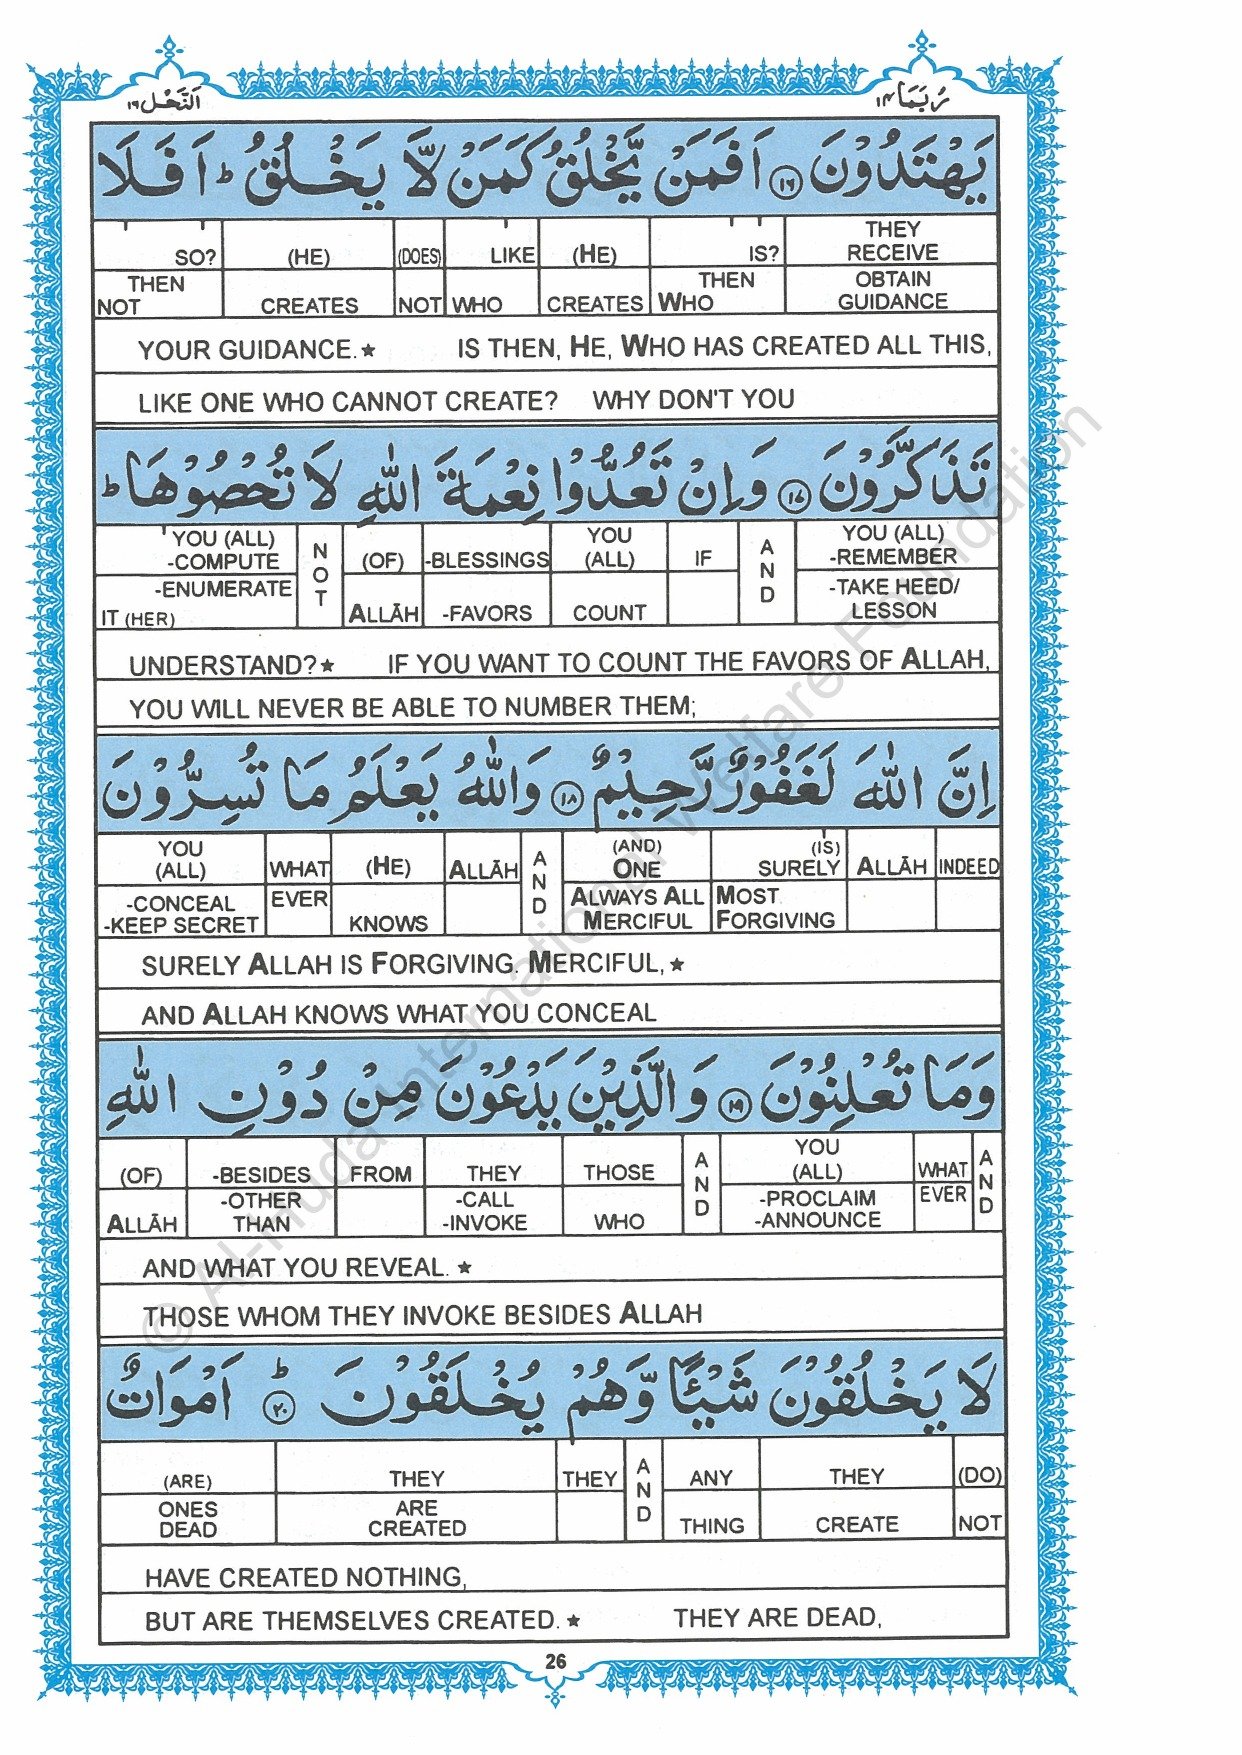 اَلنَّحْل ١٦ رُبَمَا ١٤
يَهْتَدُوْنَ ١٦ اَفَمَنْ يَّخْلُقُ كَمَنْ لَّا يَخْلُقُ ؕ اَفَلَا
SO? (HE) (DOES) LIKE (HE) IS? THEY RECEIVE
THEN NOT CREATES NOT WHO CREATES THEN WHO OBTAIN GUIDANCE
YOUR GUIDANCE.★ IS THEN, HE, WHO HAS CREATED ALL THIS,
LIKE ONE WHO CANNOT CREATE? WHY DON'T YOU
تَذَكَّرُوْنَ ١٧ وَاِنْ تَعُدُّوْا نِعْمَةَ اللّٰهِ لَا تُحْصُوْهَا ؕ
YOU (ALL) -COMPUTE NOT (OF) -BLESSINGS YOU (ALL) IF AND YOU (ALL) -REMEMBER
-ENUMERATE IT (HER) ALLĀH -FAVORS COUNT -TAKE HEED/ LESSON
UNDERSTAND?★ IF YOU WANT TO COUNT THE FAVORS OF ALLAH,
YOU WILL NEVER BE ABLE TO NUMBER THEM;
اِنَّ اللّٰهَ لَغَفُوْرٌ رَّحِيْمٌ ١٨ وَاللّٰهُ يَعْلَمُ مَا تُسِرُّوْنَ
YOU (ALL) WHAT (HE) ALLĀH AND (AND) ONE (IS) SURELY ALLĀH INDEED
-CONCEAL -KEEP SECRET EVER KNOWS ALWAYS ALL MERCIFUL MOST FORGIVING
SURELY ALLAH IS FORGIVING. MERCIFUL,★
AND ALLAH KNOWS WHAT YOU CONCEAL
وَمَا تُعْلِنُوْنَ ١٩ وَالَّذِيْنَ يَدْعُوْنَ مِنْ دُوْنِ اللّٰهِ
(OF) -BESIDES FROM THEY THOSE AND YOU (ALL) WHAT AND
ALLĀH -OTHER THAN -CALL -INVOKE WHO -PROCLAIM -ANNOUNCE EVER
AND WHAT YOU REVEAL.★
THOSE WHOM THEY INVOKE BESIDES ALLAH
لَا يَخْلُقُوْنَ شَيْـًٔا وَّهُمْ يُخْلَقُوْنَ ؕ ٢٠ اَمْوَاتٌ
(ARE) THEY THEY AND ANY THEY (DO)
ONES DEAD ARE CREATED THING CREATE NOT
HAVE CREATED NOTHING,
BUT ARE THEMSELVES CREATED.★ THEY ARE DEAD,
26
© Al-Huda International Welfare Foundation